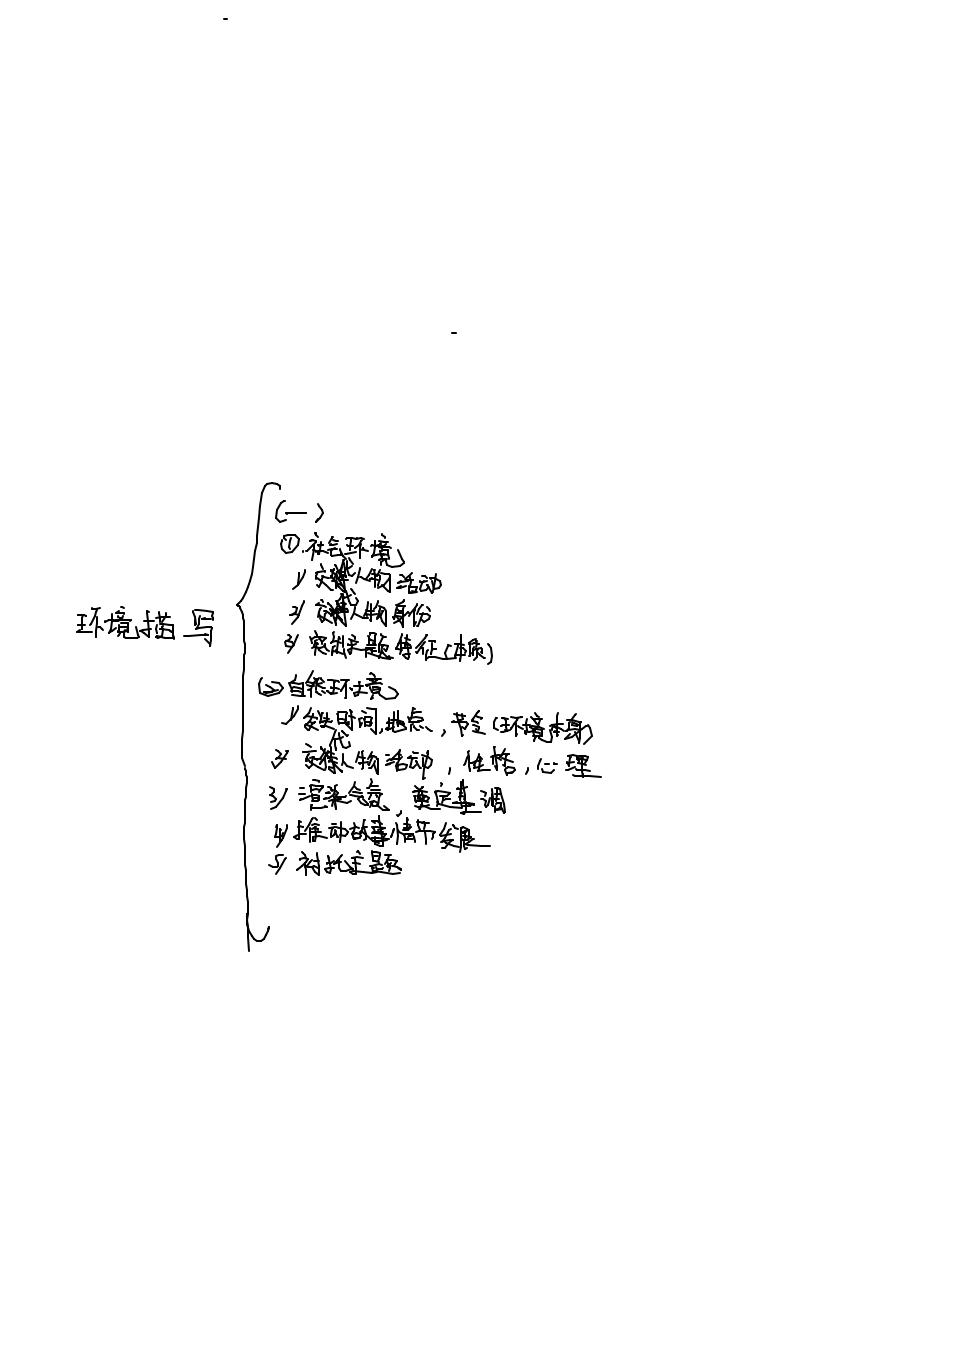 环境描写
(一)
①.社会环境
1) 交代人物活动
2) 交代人物身份
3) 突出主题特征(本质)
(二)自然环境
1) 时间,地点、,节令(环境本身)
2) 交代人物活动,性格,心理
3) 渲染气氛,奠定基调
4) 推动故事情节发展
5) 衬托主题